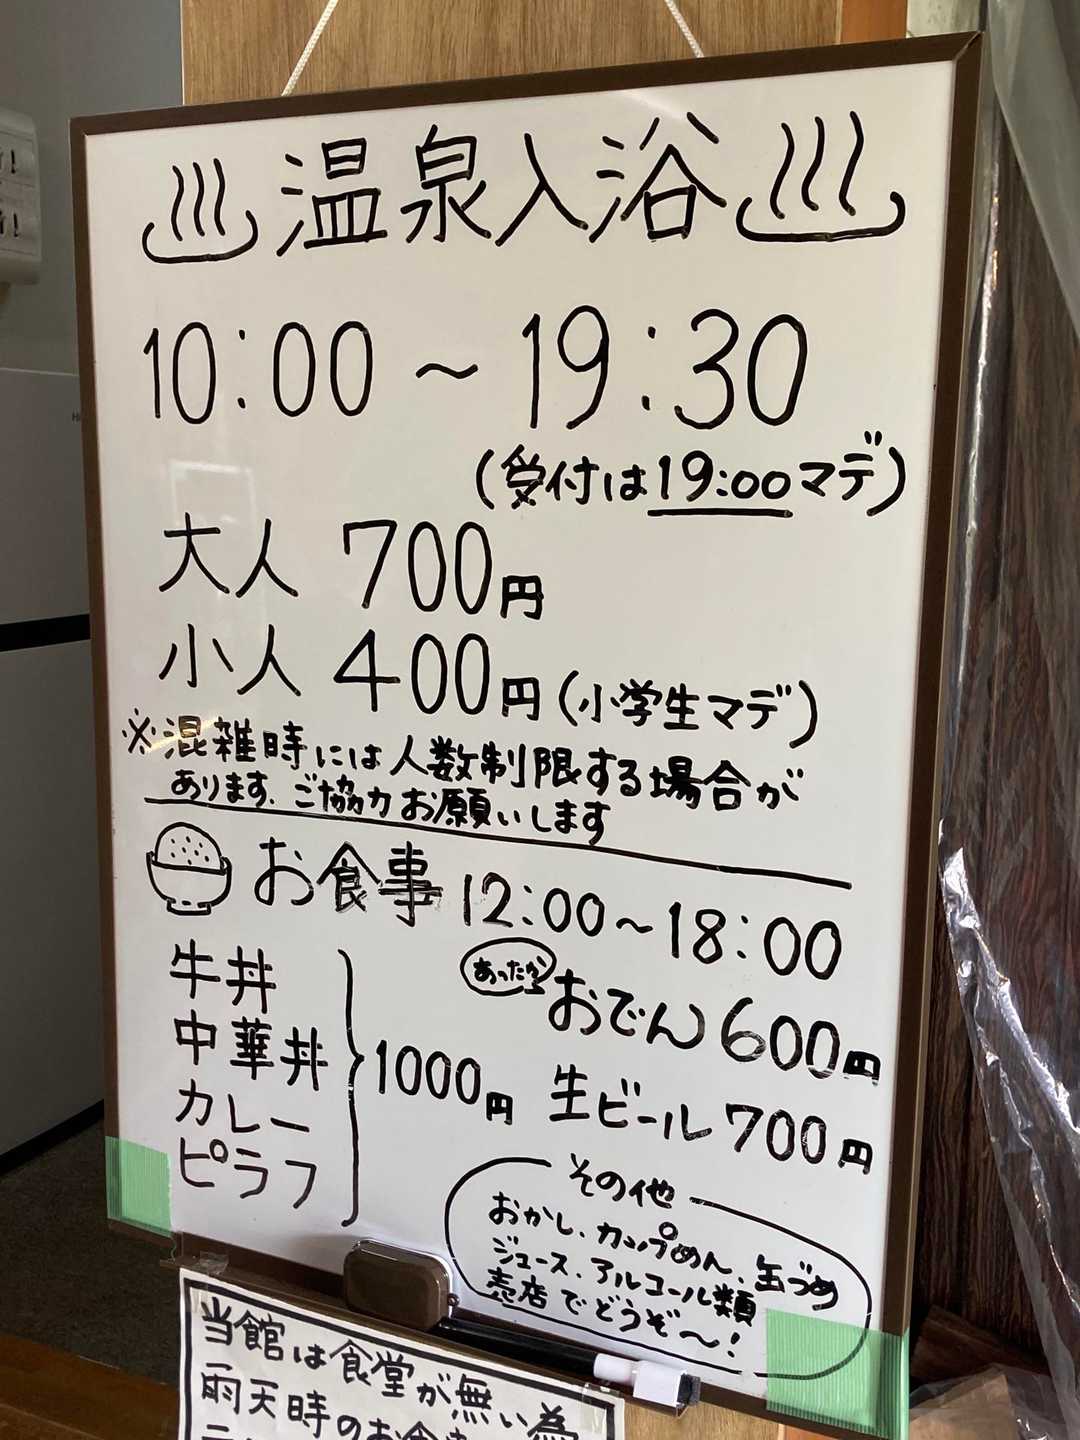 ♨温泉入浴♨
10:00～19:30
(受付は19:00マデ)
大人 700円
小人 400円(小学生マデ)
※混雑時には人数制限する場合が
あります、ご協力お願いします
お食事 12:00～18:00
牛丼
中華丼
カレー
ピラフ
1000円
あったか
おでん 600円
生ビール 700円
その他
おかし、カップめん、缶づめ
ジュース、アルコール類
売店でどうぞ～!
当館は食堂が無い為
雨天時のお食事